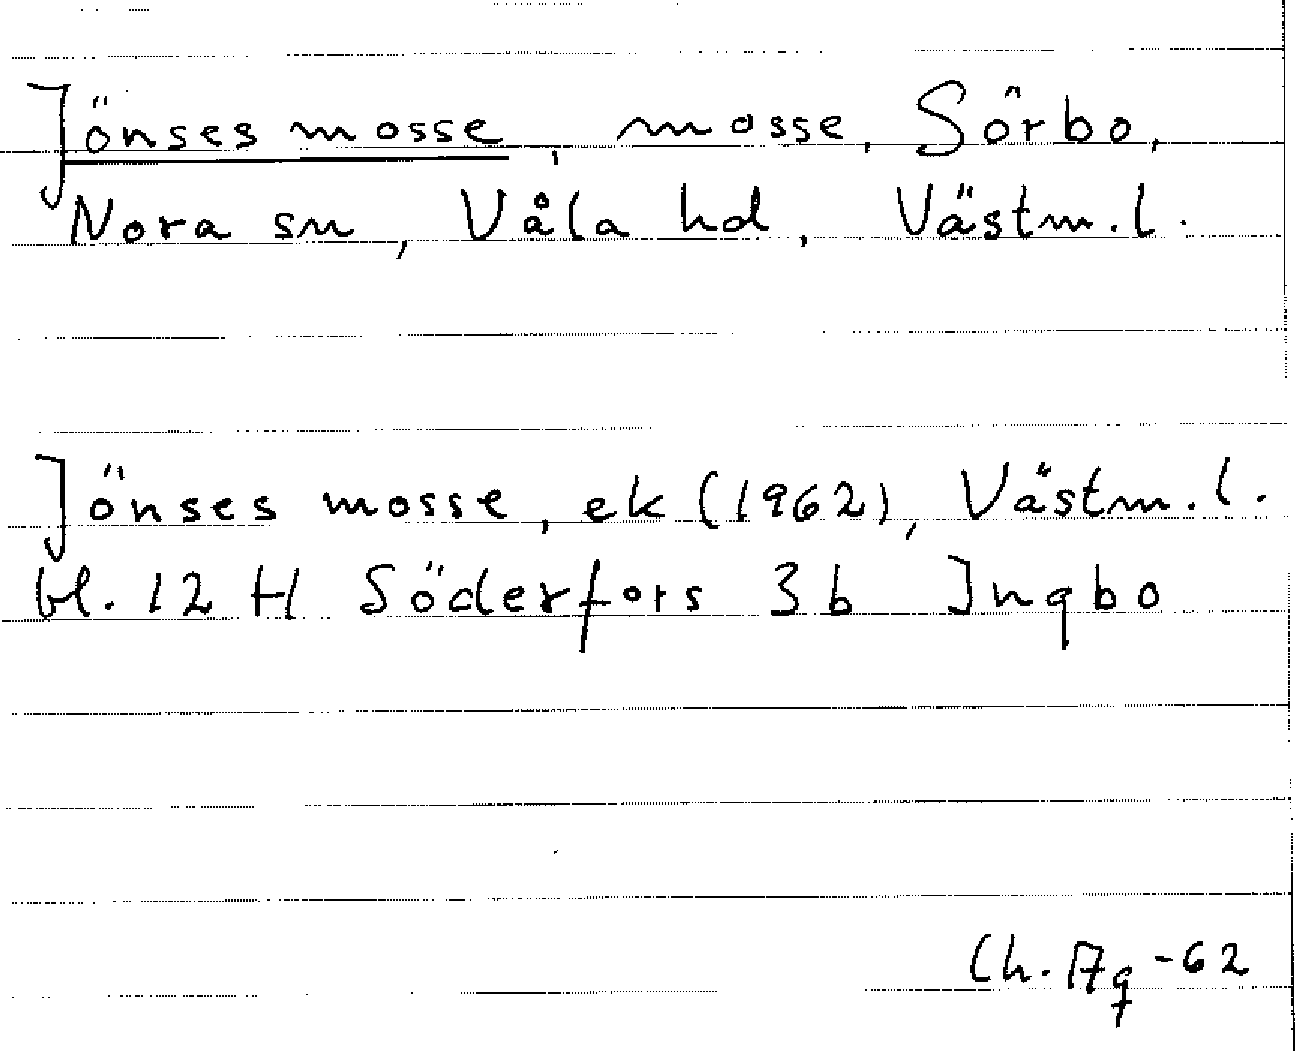 Jönses mosse, mosse, Sörbo,
Nora sn, Våla hd, Västm. l.
Jönses mosse, ek (1962), Västm. l.
bl. 12 H Söderfors 3b Ingbo
Ch. Ag -62